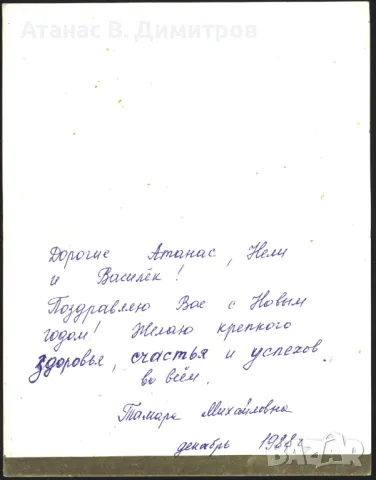 Атанас В. Димитров
Дорогие Атанас, Нели
и Василёк!
Поздравляю Вас с Новым
годом! Желаю крепкого
здоровья, счастья и успехов
во всём.
Тамара Михайловна
декабрь 1988 г.
BAZAR